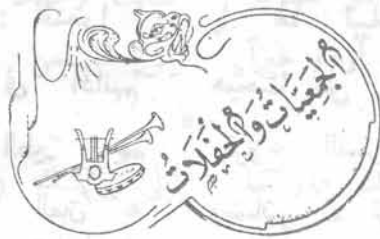 الجَمْعِيَاتُ وَالْحَفَلَاتُ